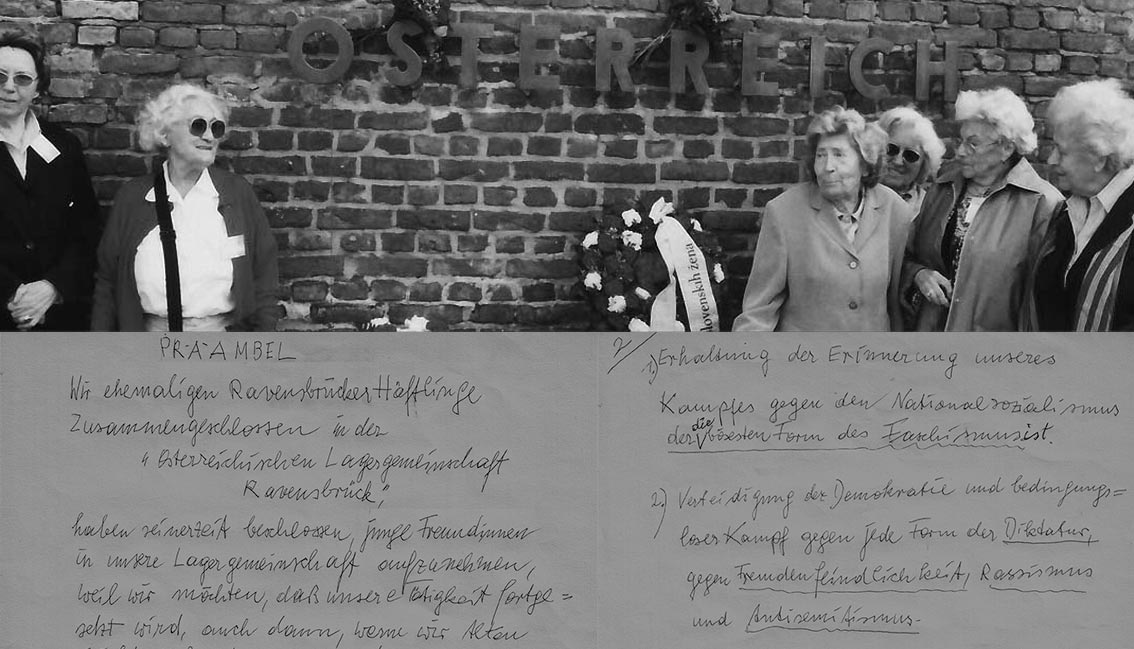 ÖSTERREICH
slovenskih žena
PRÄAMBEL
Wir ehemaligen Ravensbrücker Häftlinge
Zusammengeschlossen in der
"Österreichischen Lagergemeinschaft
Ravensbrück"
haben seinerzeit beschlossen, junge Freundinnen
in unsere Lagergemeinschaft aufzunehmen,
weil wir möchten, daß unsere Tätigkeit fortge=
setzt wird, auch dann, wenn wir Alten
2/
1.) Erhaltung der Erinnerung unseres
Kampfes gegen den Nationalsozialismus
der die bösesten Form des Faschismus ist.
2.) Verteidigung der Demokratie und bedingungs=
loser Kampf gegen jede Form der Diktatur,
gegen Fremdenfeindlichkeit, Rassismus
und Antisemitismus.